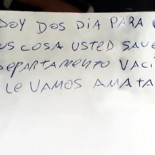 DOY DOS DIA PARA
US COSA USTED SAVE
DEPARTAMENTO VACI
LE VAMOS AMATA